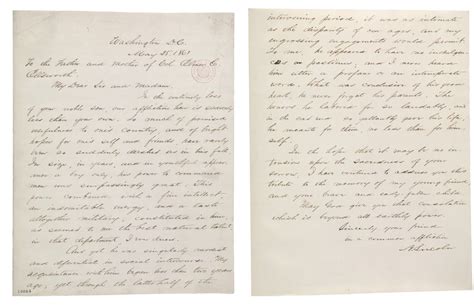 Washington D.C.
May 25. 1861
To the Father and Mother of Col. Elmer E.
Ellsworth:
My dear Sir and Madam,
In the untimely loss
of your noble son, our affliction here, is scarcely
less than your own. So much of promised
usefulness to one's country, and of bright
hopes for one's self and friends, have rarely
been so suddenly dashed, as in his fall.
In size, in years, and in youthful appear-
ance, a boy only, his power to command
men, was surpassingly great. This
power, combined with a fine intellect,
an indomitable energy, and a taste
altogether military, constituted in him,
as seemed to me, the best natural talent,
in that department, I ever knew.
And yet he was singularly modest
and deferential in social intercourse. My
acquaintance with him began less than two years
ago; yet through the latter half of the
intervening period, it was as intimate
as the disparity of our ages, and my
engrossing engagements, would permit.
To me, he appeared to have no indulgen-
ces or pastimes; and I never heard
him utter a profane, or an intemperate
word. What was conclusive of his good
heart, he never forgot his parents. The
honors he labored for so laudably, and,
in the sad end, so gallantly gave his life,
he meant for them, no less than for him-
self.
In the hope that it may be no in-
trusion upon the sacredness of your
sorrow, I have ventured to address you this
tribute to the memory of my young friend,
and your brave and early fallen child.
May God give you that consolation
which is beyond all earthly power.
Sincerely your friend
in a common affliction
A. Lincoln